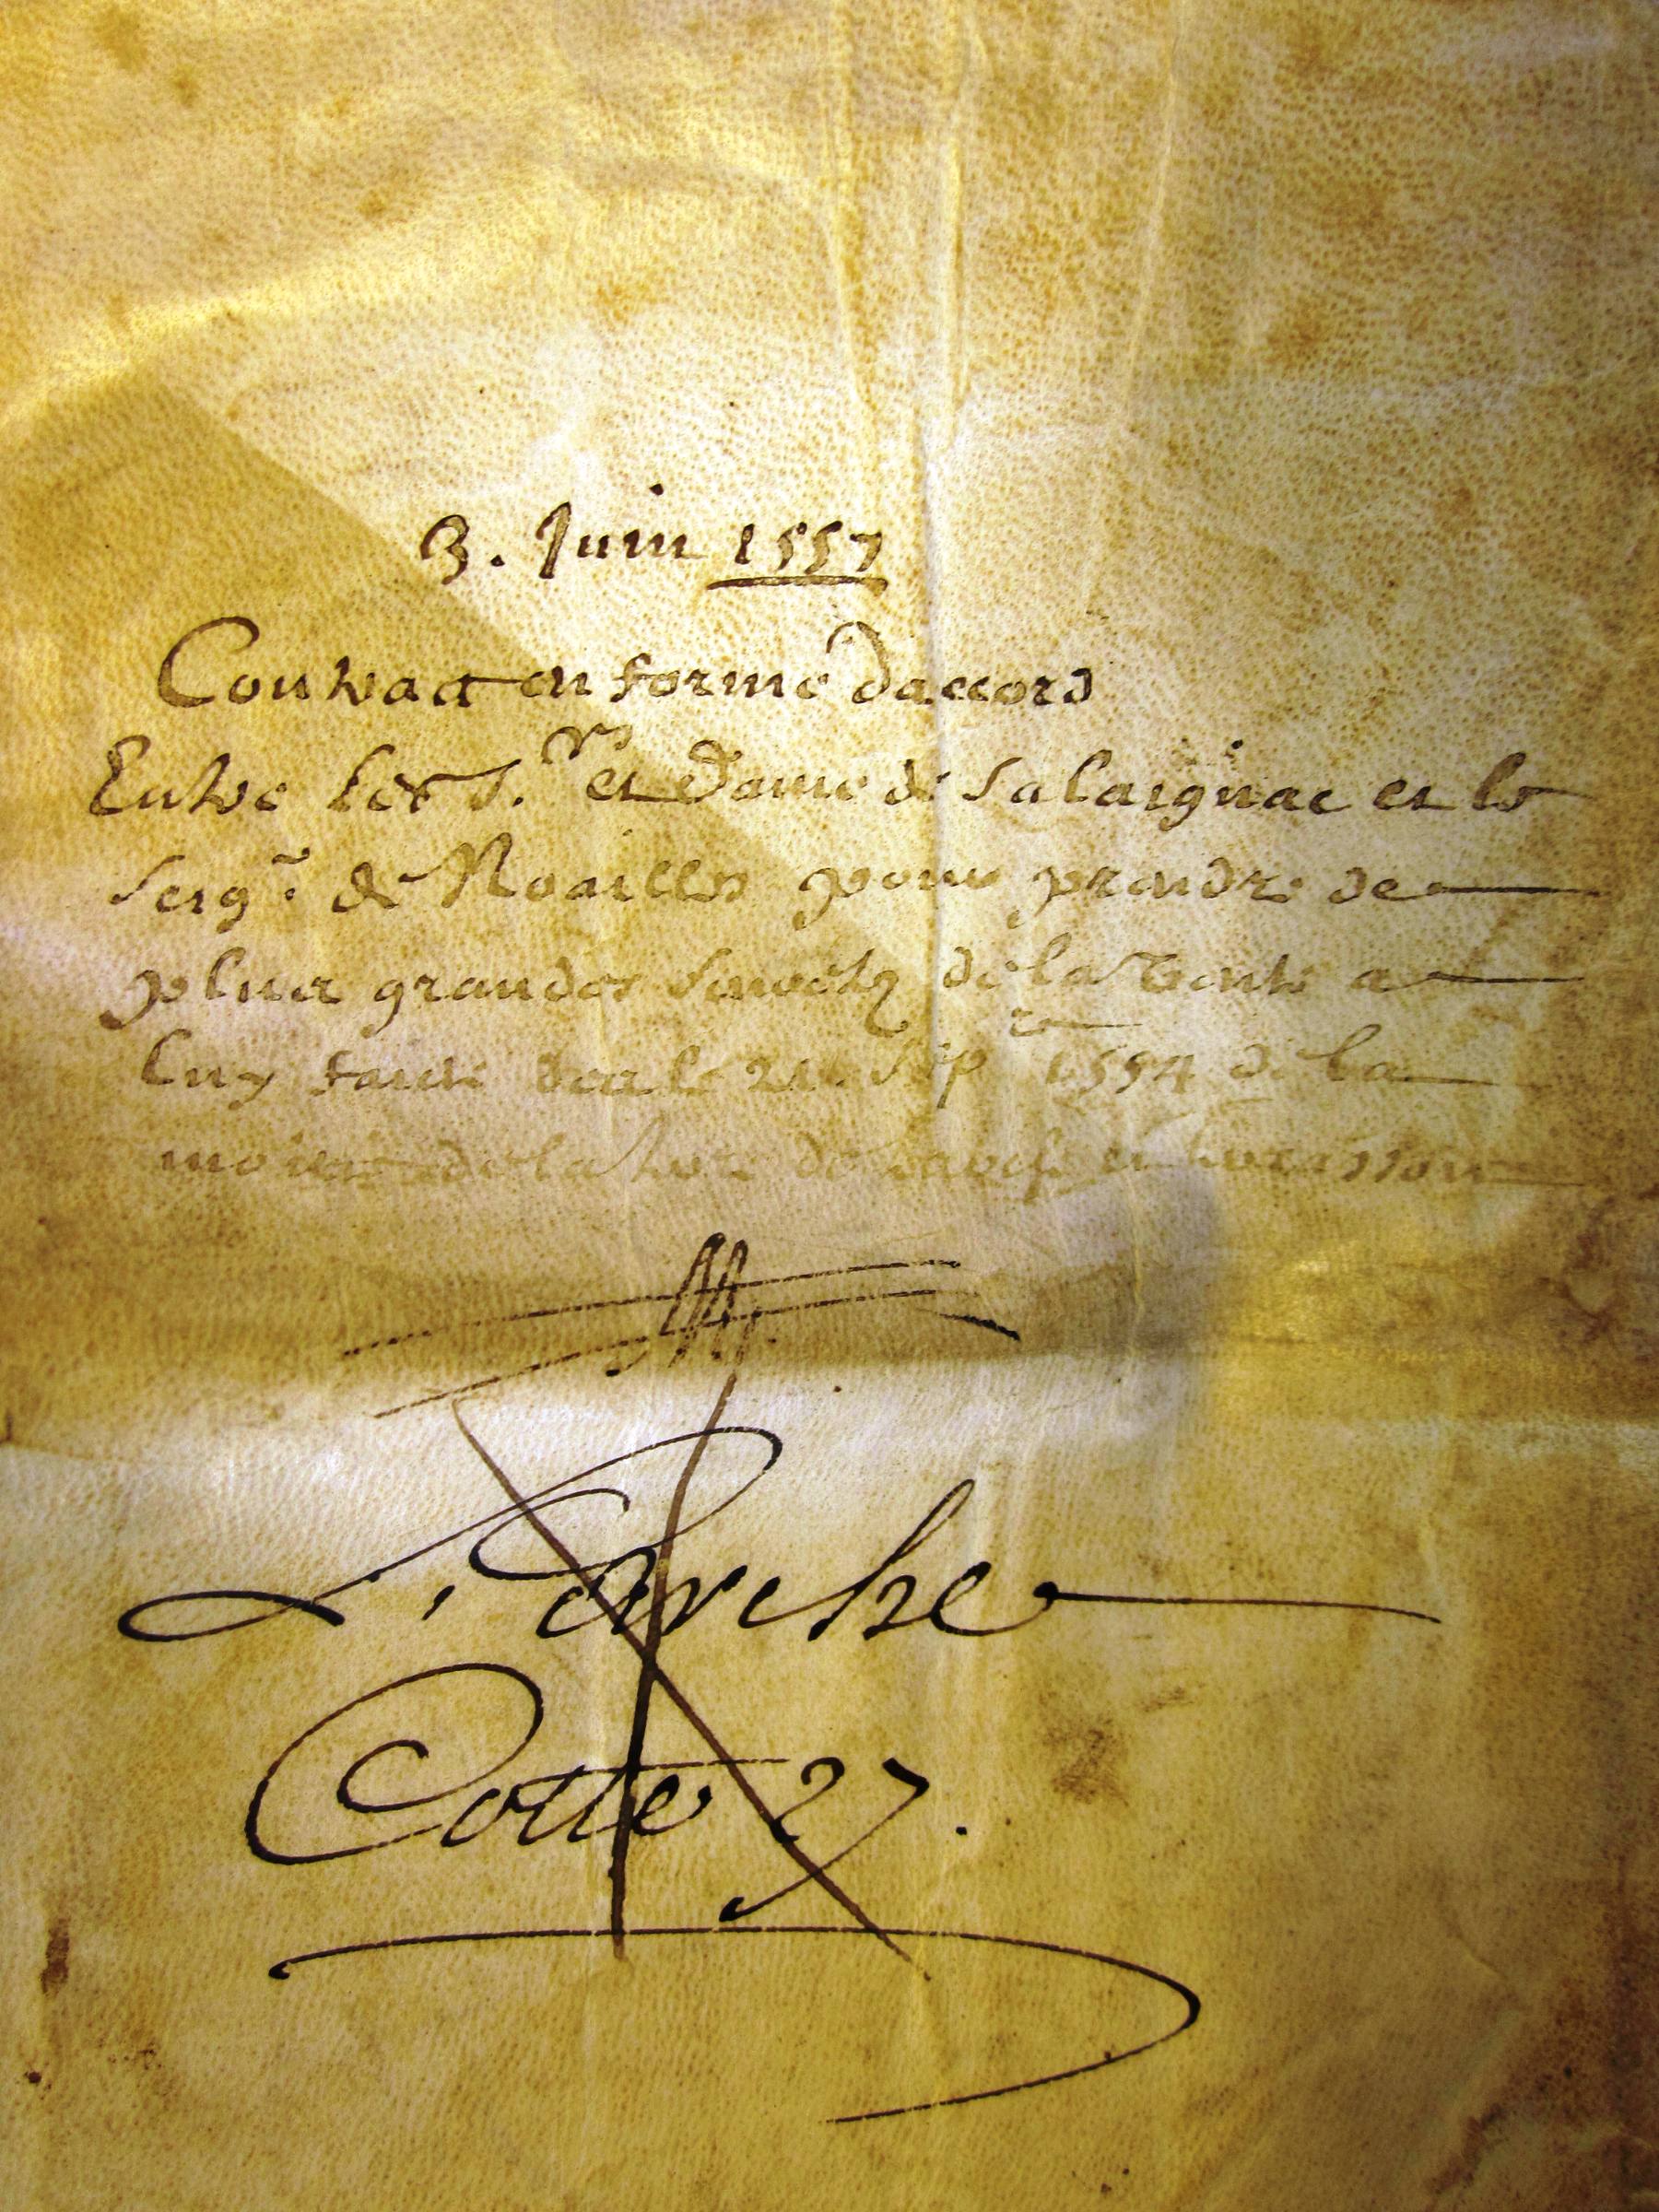 3. Juin 1557
Contract en forme daccord
Entre les S.rs et Dame de Salaignac et le
seigr. de Noailles pour prendre de
plus grandes seuretz de la vente a
luy faicte des le 21. Sepre 1554 de la
moitie de la terre de et
L'arche
Cotte 27.